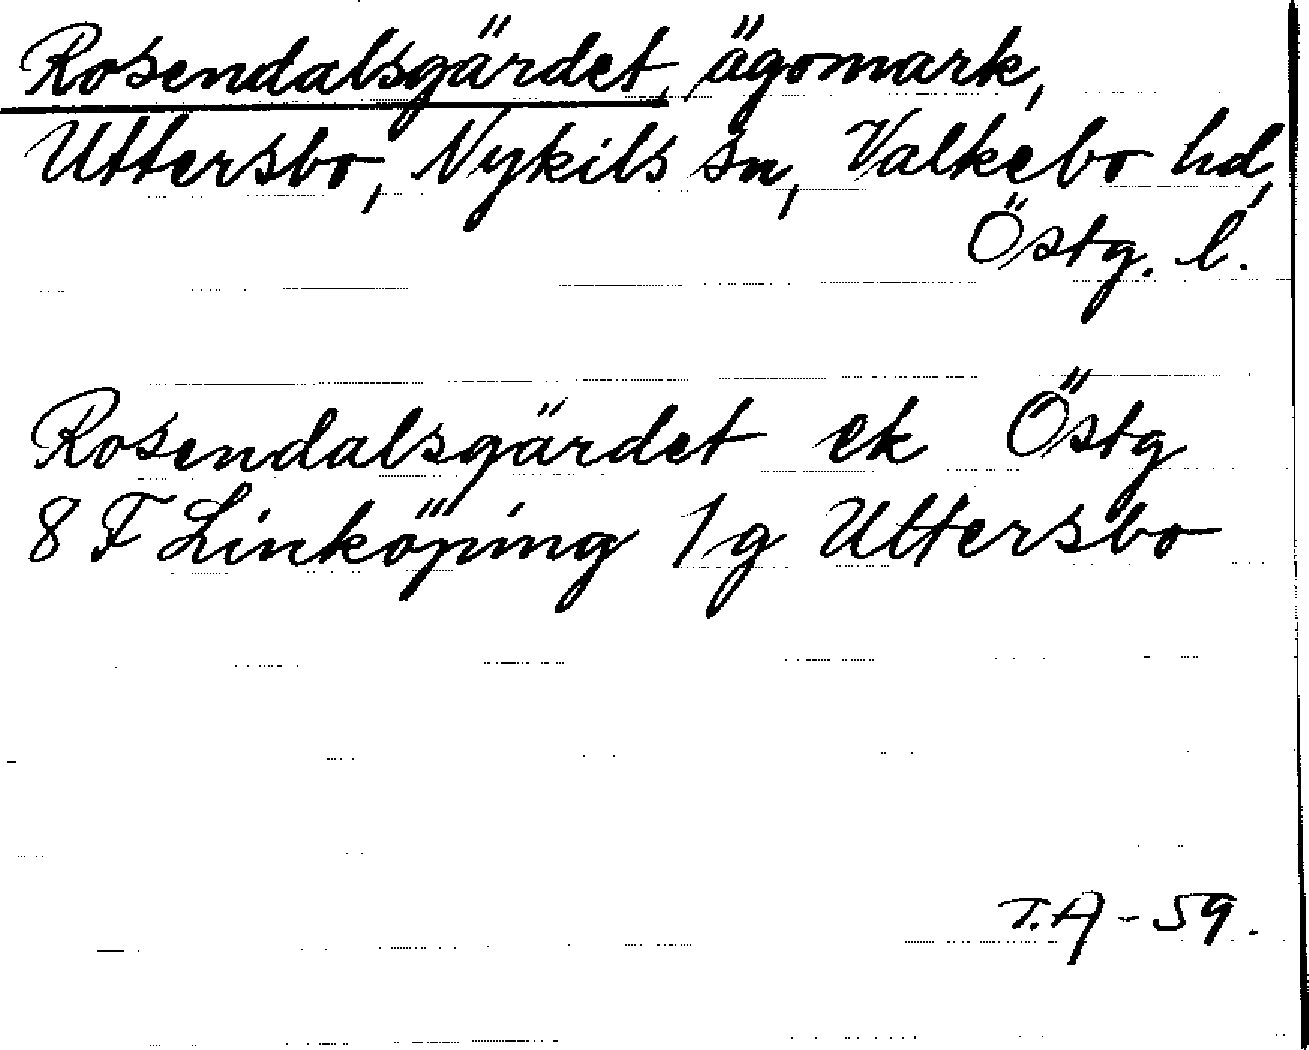 Rosendalsgärdet, ägomark,
Uttersbo, Nykils sn, Valkebo hd,
Östg. l.
Rosendalsgärdet ek Östg
8 F Linköping 1 g Uttersbo
T.A - 59.